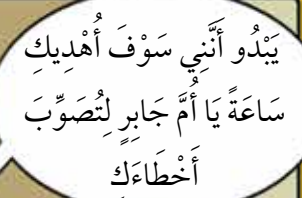 يَبْدُو أَنَّنِي سَوْفَ أُهْدِيكِ
سَاعَةً يَا أُمَّ جَابِرٍ لِتُصَوِّبَ
أَخْطَاءَكِ